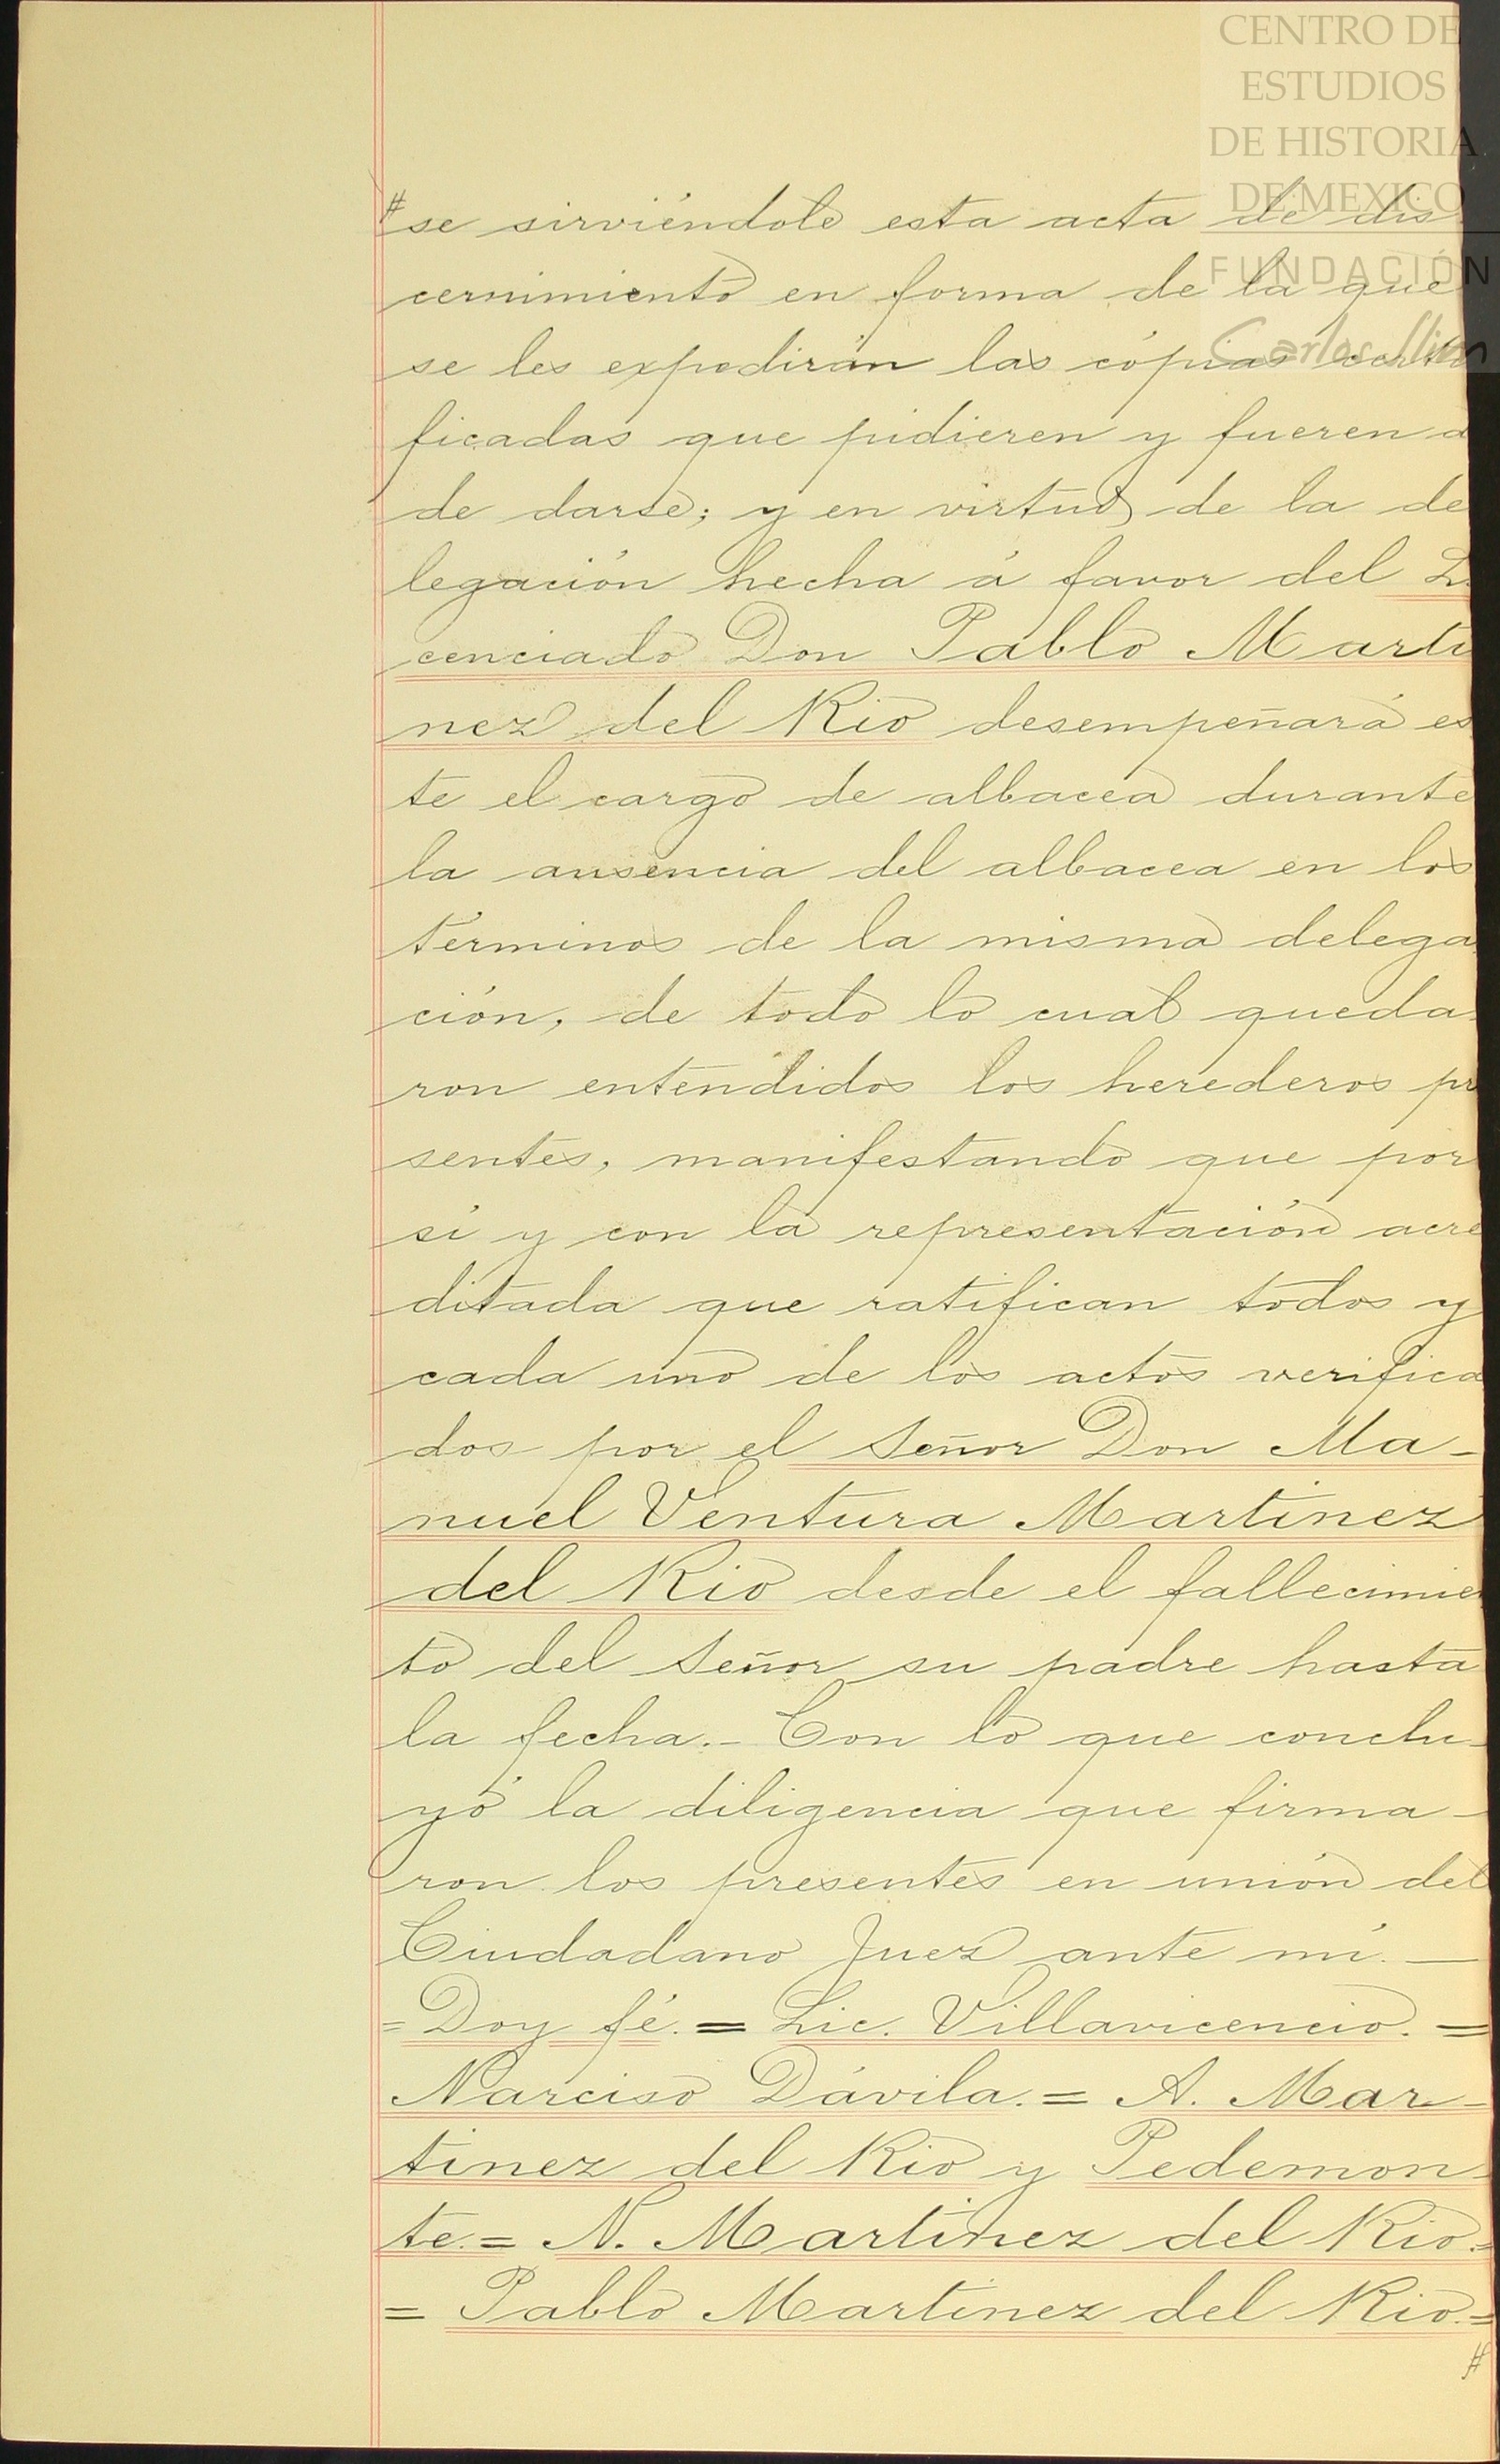 CENTRO DE
ESTUDIOS
DE HISTORIA
DE MEXICO
FUNDACIÓN
Carlos Slim
# se sirviéndole esta acta de dis
cernimiento en forma de la que
se les expedirán las cópias certi
ficadas que pidieren y fueren d
de darse; y en virtud de la de
legación hecha á favor del Li
cenciado Don Pablo Marti
nez del Rio desempeñará es
te el cargo de albacea durante
la ausencia del albacea en los
términos de la misma delega
ción, de todo lo cual queda
ron entendidos los herederos pr
sentes, manifestando que por
sí y con la representación acre
ditada que ratifican todos y
cada uno de los actos verifica
dos por el Señor Don Ma-
nuel Ventura Martinez
del Rio desde el fallecimie
to del Señor su padre hasta
la fecha.- Con lo que conclu-
yó la diligencia que firma-
ron los presentes en unión del
Ciudadano Juez ante mí. —
= Doy fé. = Lic. Villavicencio. =
Narciso Dávila. = A. Mar-
tinez del Rio y Pedemon-
te. = N. Martinez del Rio. =
= Pablo Martinez del Rio. =
#